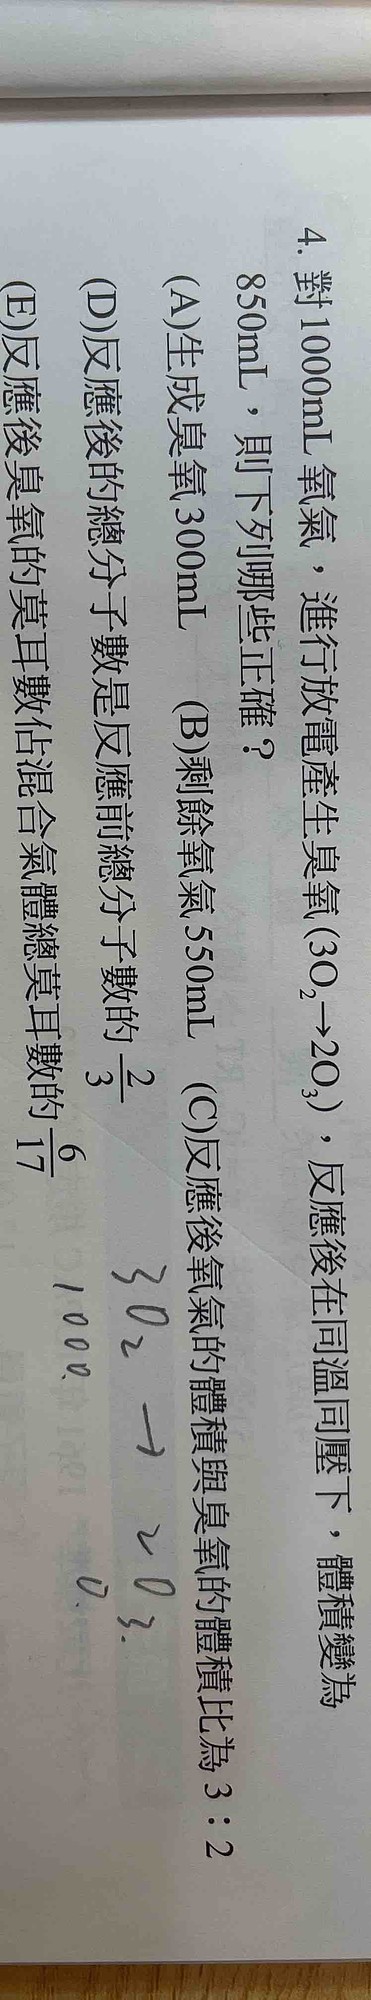 4. 對1000mL氧氣，進行放電產生臭氧(3O₂→2O₃)，反應後在同溫同壓下，體積變為
850mL，則下列哪些正確？
(A)生成臭氧300mL (B)剩餘氧氣550mL (C)反應後氧氣的體積與臭氧的體積比為3：2
(D)反應後的總分子數是反應前總分子數的2/3
(E)反應後臭氧的莫耳數佔混合氣體總莫耳數的6/17
3O₂ → 2O₃.
1000. 0.